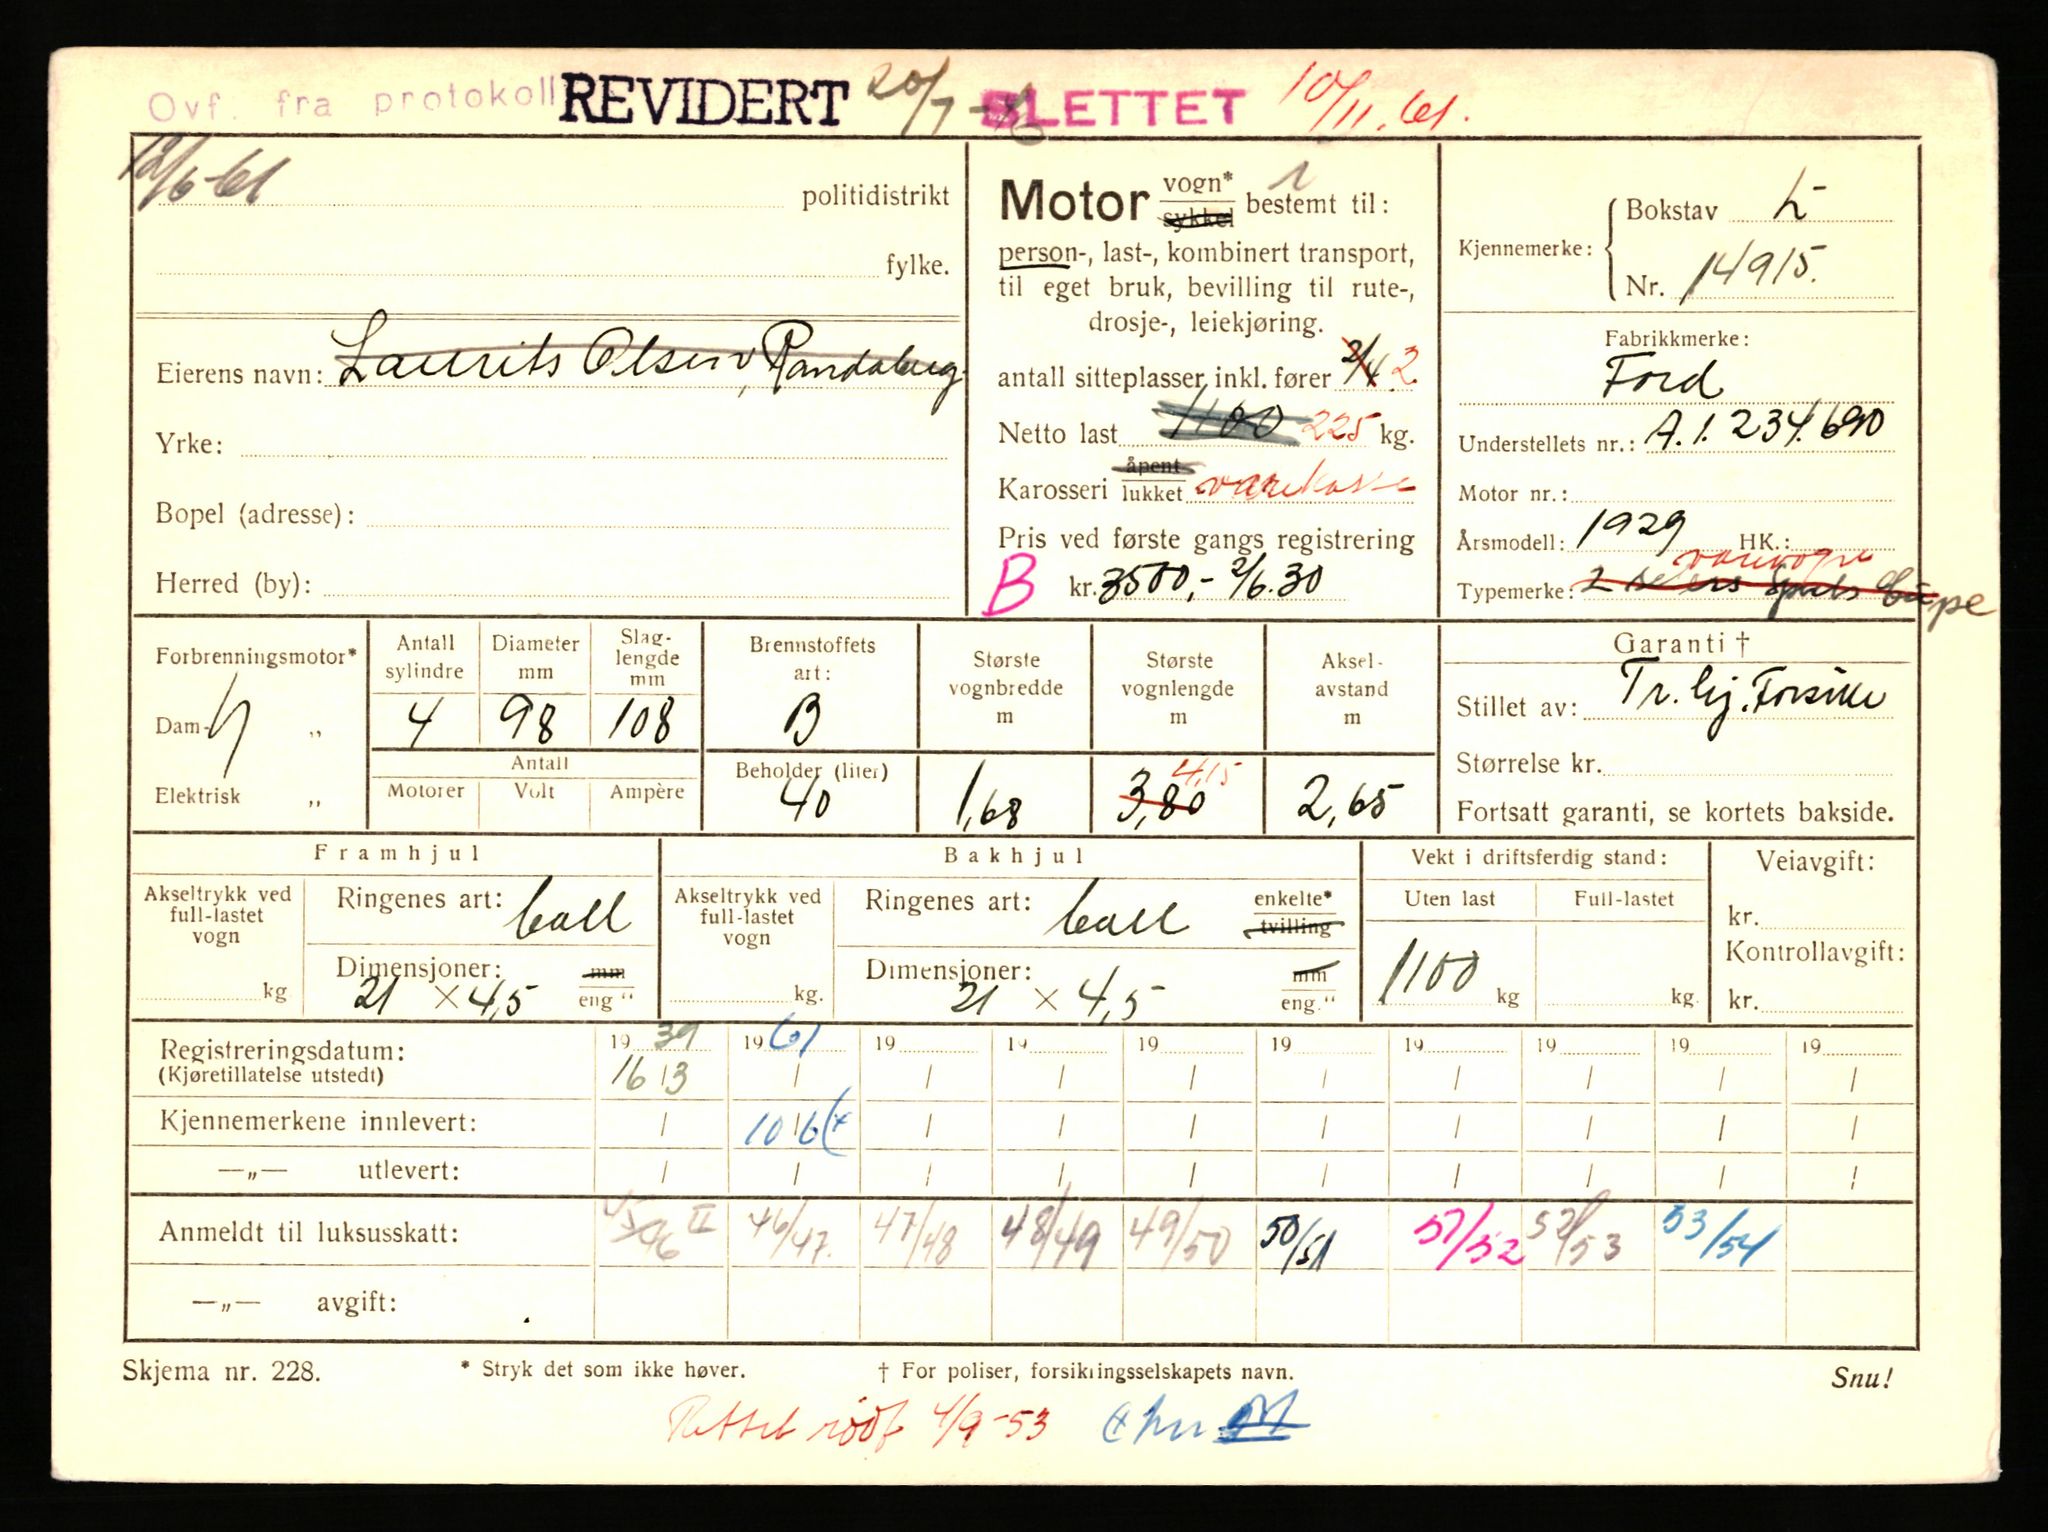 Ovf. fra protokoll REVIDERT 20/7- SLETTET 10/11.61.
12/6-61 politidistrikt
fylke.
Eierens navn: Laurits Olsen, Randaberg.
Yrke:
Bopel (adresse):
Herred (by):
Motor vogn* sykkel bestemt til:
person-, last-, kombinert transport,
til eget bruk, bevilling til rute-,
drosje-, leiekjøring.
antall sitteplasser inkl. fører 2/4 2
Netto last 1100 225 kg.
Karosseri åpent lukket varekasse
Pris ved første gangs registrering
B kr. 3500,- 2/6.30
Kjennemerke: Bokstav L-
Nr. 14915.
Fabrikkmerke:
Ford
Understellets nr.: A.1.234.690
Motor nr.:
Årsmodell: 1929 HK.:
varevogn
Typemerke: 2 seters Sports Cupe
Forbrenningsmotor*
Dam- „
Elektrisk „
Antall sylindre
4
Diameter mm
98
Slaglengde mm
108
Antall
Motorer Volt Ampère
Brennstoffets art:
B
Beholder (liter)
40
Største vognbredde m
1,68
Største vognlengde m
4,15
3,80
Akselavstand m
2,65
Garanti †
Stillet av: Tr. hj. Forsikr
Størrelse kr.
Fortsatt garanti, se kortets bakside.
Framhjul
Akseltrykk ved full-lastet vogn
kg
Ringenes art: ball
Dimensjoner: mm
21 × 4,5 eng "
Bakhjul
Akseltrykk ved full-lastet vogn
kg.
Ringenes art: ball enkelte* tvilling
Dimensjoner: mm
21 × 4,5 eng."
Vekt i driftsferdig stand:
Uten last Full-lastet
1100 kg kg.
Veiavgift:
kr.
Kontrollavgift:
kr.
Registreringsdatum: 19 39 19 61 19 19 19 19 19 19 19 19
(Kjøretillatelse utstedt) 16/3 / / / / / / / / /
Kjennemerkene innlevert: / 10/6 / / / / / / / /
—„— utlevert: / / / / / / / / / /
Anmeldt til luksusskatt: 45/46 II 46/47. 47/48 48/49 49/50 50/51 51/52 52/53 53/54
—„— avgift:
Skjema nr. 228. * Stryk det som ikke høver. † For poliser, forsikringsselskapets navn. Snu!
Rettet rødt 4/9-53